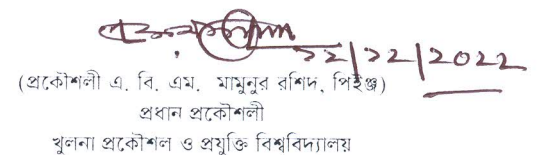 ২২/১২/২০২২
(প্রকৌশলী এ. বি. এম. মামুনুর রশিদ, পিইঞ্জ)
প্রধান প্রকৌশলী
খুলনা প্রকৌশল ও প্রযুক্তি বিশ্ববিদ্যালয়